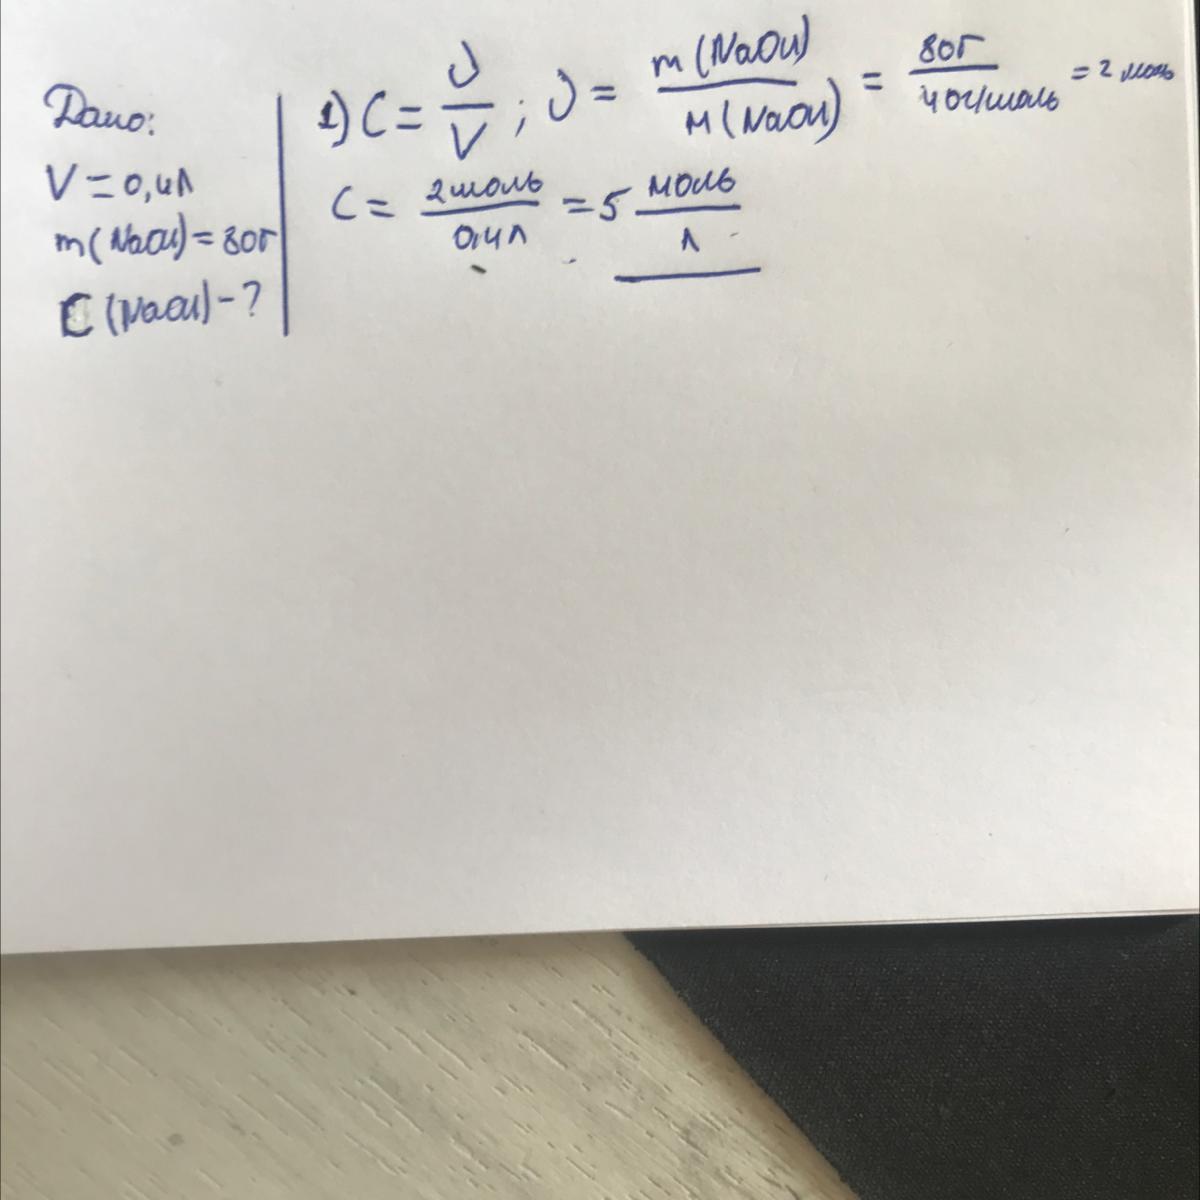 Дано:
V = 0,4л
m(NaOH) = 80г
C (NaOH) - ?
1) C = ν/V ; ν = m(NaOH)/M(NaOH) = 80г/40г/моль = 2 моль
C = 2моль/0,4л = 5 моль/л